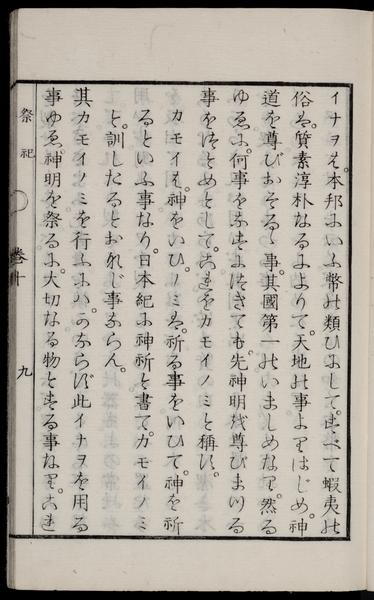 イナヲは。本邦にいふ幣の類ひにして。すべて蝦夷の
俗は。質素淳朴なるによりて。天地の事よりはじめ。神
道を尊びおそるゝ事。其國第一のいましめなり。然る
ゆゑに。何事をなすにつきても。先神明を尊びまつる
事をつとめとして。これをカモイノミと稱す。
カモイは。神をいひ。ノミは。祈る事をいひて。神を祈
るといふ事なり。日本紀に神祈と書て。カモイノミ
と訓したるとおなじ事ならん。
其カモイノミを行ふには。かならず此イナヲを用る
事ゆゑ。神明を祭るに。大切なる物とする事なり。これ
祭祀
卷十
九